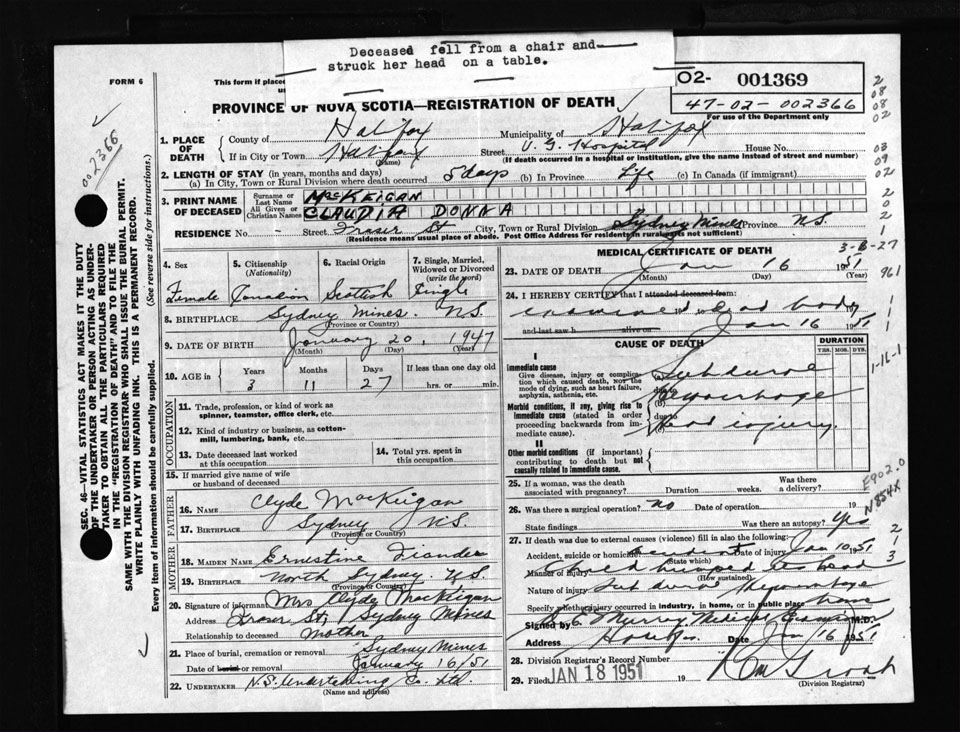 Deceased fell from a chair and
struck her head on a table.
FORM 6
This form if placed
O2- 001369
47-02-002366
For use of the Department only
PROVINCE OF NOVA SCOTIA—REGISTRATION OF DEATH
002366
1. PLACE OF DEATH
County of Halifax Municipality of Halifax
If in City or Town Halifax (Name) Street V. G. Hospital House No.
(If death occurred in a hospital or institution, give the name instead of street and number)
2. LENGTH OF STAY (in years, months and days)
(a) In City, Town or Rural Division where death occurred 5 days (b) In Province Life (c) In Canada (if immigrant)
3. PRINT NAME OF DECEASED
Surname or Last Name MacKEIGAN
All Given or Christian Names CLAUDIA DONNA
RESIDENCE No. Street Fraser St City, Town or Rural Division Sydney Mines Province N.S.
(Residence means usual place of abode. Post Office Address for residents in rural parts not sufficient)
4. Sex
Female
5. Citizenship (Nationality)
Canadian
6. Racial Origin
Scottish
7. Single, Married, Widowed or Divorced (write the word)
Single
8. BIRTHPLACE Sydney Mines, N.S.
(Province or Country)
9. DATE OF BIRTH January 20, 1947
(Month) (Day) (Year)
10. AGE in Years Months Days If less than one day old
3 11 27 hrs. or min.
OCCUPATION
11. Trade, profession, or kind of work as spinner, teamster, office clerk, etc.
12. Kind of industry or business, as cotton-mill, lumbering, bank, etc.
13. Date deceased last worked at this occupation
14. Total yrs. spent in this occupation
15. If married give name of wife or husband of deceased
FATHER
16. Name Clyde MacKeigan
17. Birthplace Sydney N.S.
(Province or Country)
MOTHER
18. MAIDEN NAME Ernestine Fiander
19. BIRTHPLACE North Sydney, N.S.
(Province or Country)
20. Signature of informant Mrs Clyde MacKeigan
Address Fraser St, Sydney Mines
Relationship to deceased Mother
21. Place of burial, cremation or removal Sydney Mines
Date of burial or removal January 16/51
22. UNDERTAKER N.S. Undertaking Co. Ltd.
(Name and address)
MEDICAL CERTIFICATE OF DEATH
3-6-27
23. DATE OF DEATH Jan 16 1951
(Month) (Day) (Year)
24. I HEREBY CERTIFY that I attended deceased from:
examined dead body 19
and last saw h alive on Jan 16 1951
CAUSE OF DEATH
DURATION
YRS. MOS. DYS.
I
Immediate cause
Give disease, injury or complication which caused death, NOT the mode of dying, such as heart failure, asphyxia, asthenia, etc.
(a) Subdural
Hemorrhage
(b)
Morbid conditions, if any, giving rise to immediate cause (stated in order proceeding backwards from immediate cause).
due to
Head injury.
II
Other morbid conditions (if important) contributing to death but not causally related to immediate cause.
25. If a woman, was the death associated with pregnancy? Duration weeks. Was there a delivery?
26. Was there a surgical operation? no Date of operation 19
State findings Was there an autopsy? Yes
27. If death was due to external causes (violence) fill in also the following:
Accident, suicide or homicide? accident Date of injury Jan 10, 1951
(State which)
Manner of injury Child bumped its head
(How sustained)
Nature of injury Subdural Hemorrhage
Specify whether injury occurred in industry, in home, or in public place home
Signed by Murray Medical Examiner M.D.
Address Halifax Date Jan 16 1951
28. Division Registrar's Record Number
29. Filed JAN 18 1951 19
(Division Registrar)
961
1-16-1
E902.0
N854X
SEC. 46—VITAL STATISTICS ACT MAKES IT THE DUTY
OF THE UNDERTAKER OR PERSON ACTING AS UNDER-
TAKER TO OBTAIN ALL THE PARTICULARS REQUIRED
IN THE "REGISTRATION OF DEATH" AND TO FILE THE
SAME WITH THE DIVISION REGISTRAR WHO SHALL ISSUE THE BURIAL PERMIT.
WRITE PLAINLY WITH UNFADING INK. THIS IS A PERMANENT RECORD.
Every item of information should be carefully supplied. (See reverse side for instructions.)